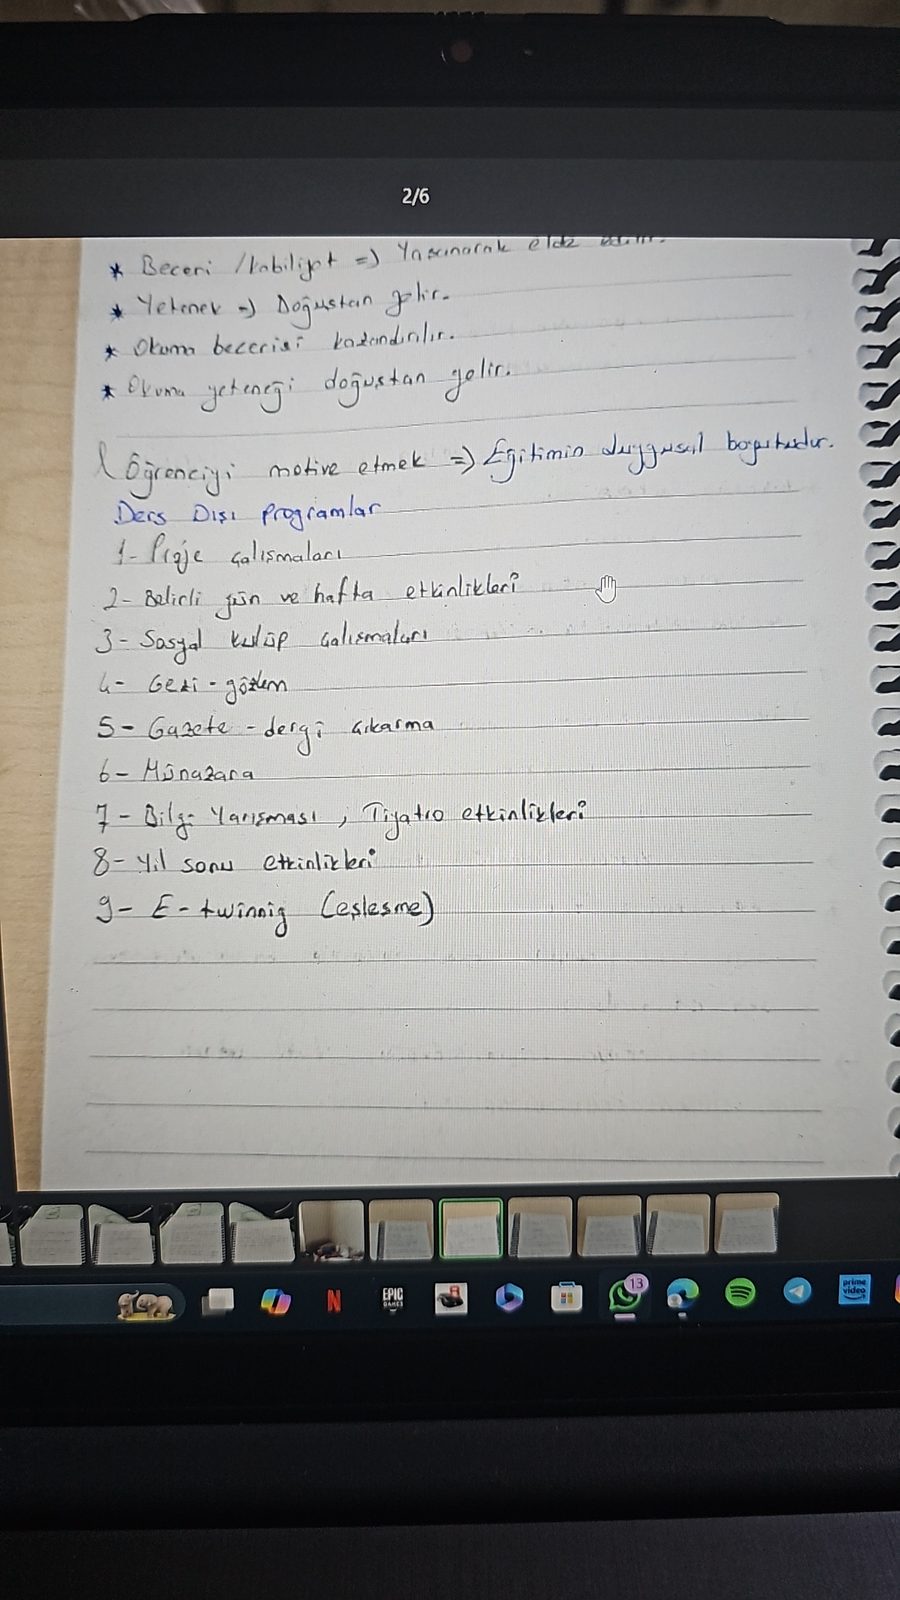 2/6
* Beceri /kabiliyet => Yaşanarak elde edilir.
* Yetenek => Doğuştan gelir.
* Okuma becerisi kazandırılır.
* Okuma yeteneği doğuştan gelir.
Öğrenciyi motive etmek => Eğitimin duygusal boyutudur.
Ders Dışı Programlar
1- Proje çalışmaları
2- Belirli gün ve hafta etkinlikleri
3- Sosyal kulüp çalışmaları
4- Gezi - gözlem
5- Gazete - dergi çıkarma
6- Münazara
7- Bilgi Yarışması, Tiyatro etkinlikleri
8- Yıl sonu etkinlikleri
9- E-twinnig (eşleşme)
EPIC
GAMES
13
prime
video